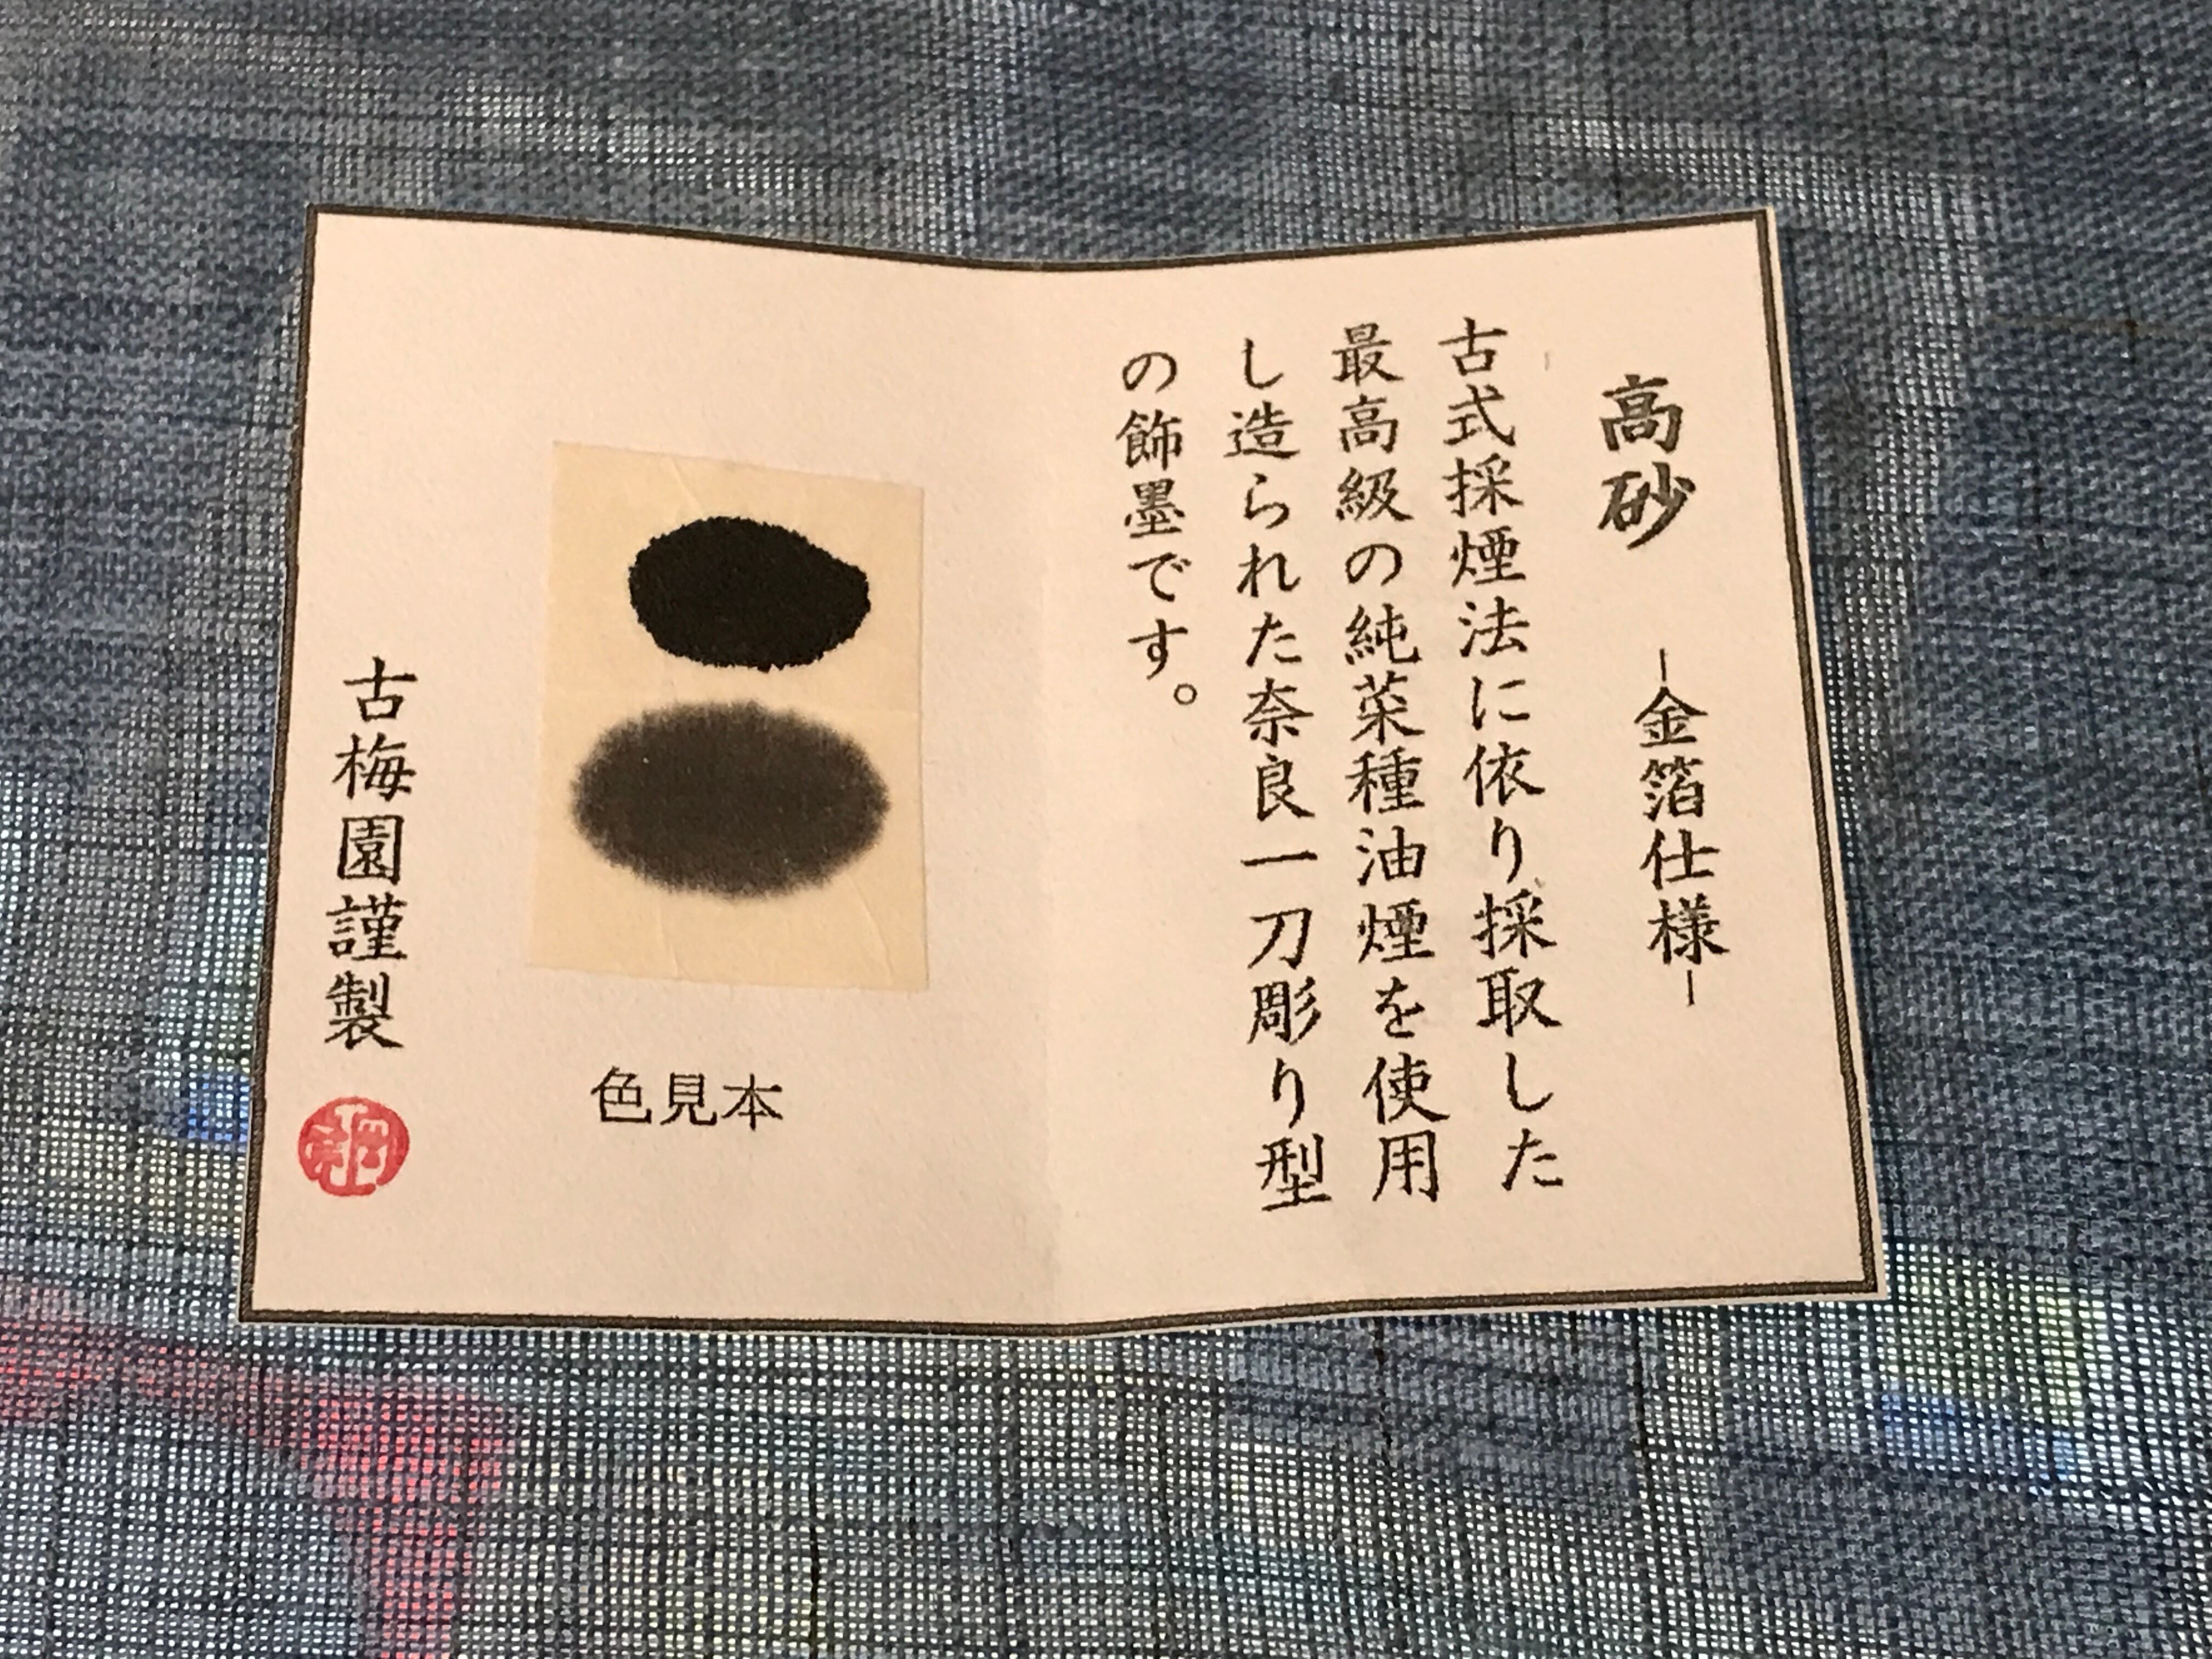 高砂 ー金箔仕様ー
古式採煙法に依り採取した
最高級の純菜種油煙を使用
し造られた奈良一刀彫り型
の飾墨です。
色見本
古梅園謹製